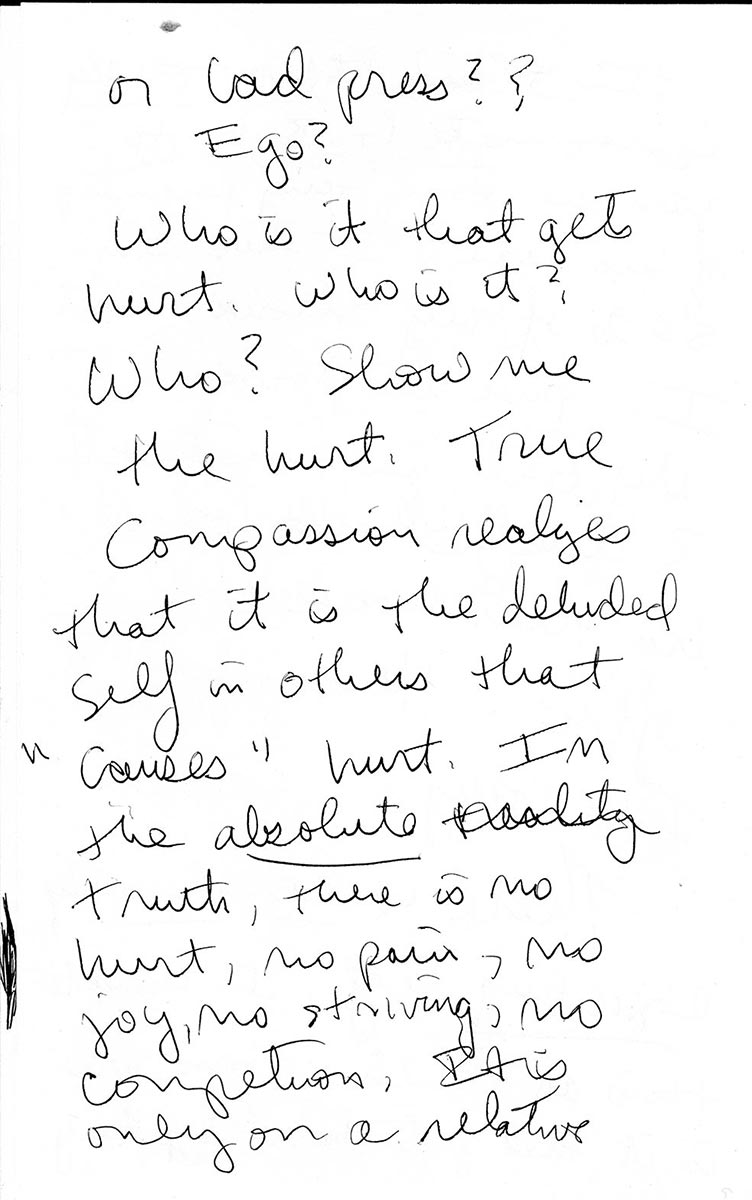 or bad press??
Ego?
Who is it that gets
hurt. Who is it?
Who? Show me
the hurt. True
Compassion realizes
that it is the deluded
self in others that
"causes" hurt. In
the absolute
truth, there is no
hurt, no pain, no
joy, no striving, no
competion, It is
only on a relative